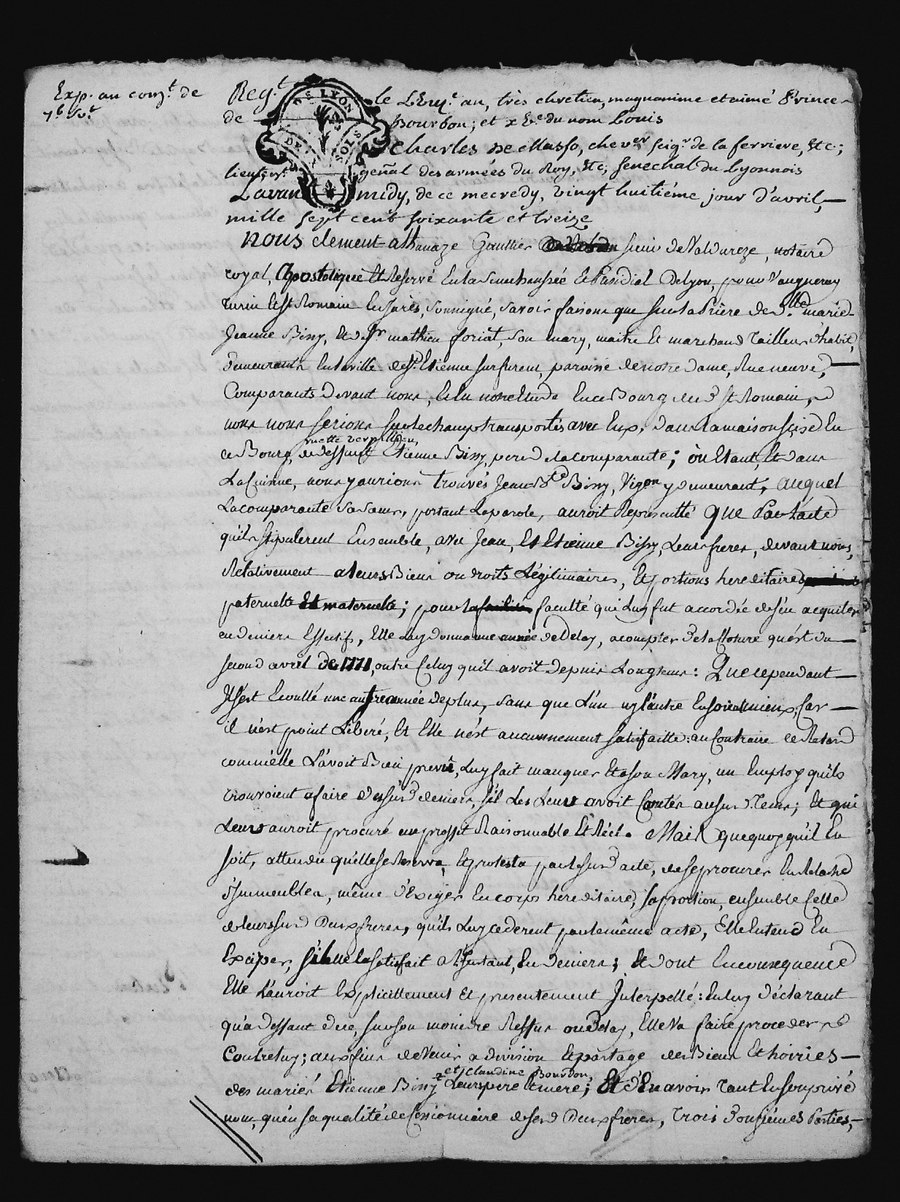 Exp. au con.t de
Reg.t le très chretien, magnanime et aimé Prince
de Bourbon; et x.e du nom Louis
DE LYON
DEUX SOLS
Charles de Masso, chev.er seig.r de la ferriere, &c;
lieut. genal des armées du Roy, &c, senechal du Lyonnois
L'avant midy, de ce mecredy, vingt huitiéme jour d'avril,
mille sept cent soixante et treize
nous clement athanaze Gaultier sieur de Valdureze, notaire
royal, Apostolique Et Reservé En la senechaussée Et Presidial De Lyon, pour Vaugneray
turin Et St Romain En Jarès, soussigné, savoir faisons que sur la Prière de d.lle marie
Jeanne Bissy, & de Sr mathieu foriat, son mary, maitre Et marchand Tailleur d'habit,
Demeurants En la ville de St Etienne sur furent, paroisse de notre dame, Rue neuve,
Comparants devant nous, En notre Etude En ce Bourg de St Romain,
nous nous serions sur le champ transportés avec Eux, dans la maison sise En
ce Bourg, de deffunt Etienne Bissy, pere de la comparante; où Etant, Et dans
La Cuisine, nous y aurions trouvés Jean B.te Bissy, Vigon y demeurant, auquel
La comparante sa sœur, portant La parole, auroit Representté que Par L'acte
qu'ils stipulerent Ensemble, avec Jean, Et Etienne Bissy Leurs freres, devant nous,
Relativement a leurs Biens ou droits Légitimaires, Et portions hereditaires
paternelle Et maternelle; pour la faculté qui Luy fut accordée de s'en acquiter
en deniers Effectif, Elle Luy donna une année de Delay, a compter De la Cloture qu'est du
second avril de 1771, outre Celuy qu'il avoit depuis Longtems: Que cependant
Il s'est Ecoullé une autre année de plus, sans que L'un ny L'autre En soient mieux, Car
il n'est point Libéré, Et Elle n'est aucunement satisfaitte: au Contraire ce Retard
comme Elle L'avoit Bien prevû, Luy fait manquer Et a son Mary, un Employ qu'ils
trouvoient a faire de ses deniers, s'il Les Leurs avoit Comtés; Et qui
Leurs auroit procuré un proffit Raisonnable Et Réel. Mais que quoy qu'il En
soit, attendu qu'elle se Reserva, Et protesta par le sus.d acte, de se procurer
d'Immeubles, même d'Exiger En corps hereditaire, sa portion, ensemble Celle
de leurs sus.d Deux freres, qu'ils Luy cederent par le même acte, Elle Entend En
Exciper, s'il ne La satisfait a L'instant, En Deniers; & dont En consequence
Elle L'auroit Explicitement Et presentement Interpellé: En Luy déclarant
qu'a deffaut de ce, sur son moindre Reffus ou Delay, Elle Va faire proceder
Contre luy; aux fins de Venir a division Et partage des Biens Et hoiries
et Claudine Bourbon,
des mariés Etienne Bissy Leurs pere Et mere; Et d'En avoir Tant En son privé
nom, qu'en sa qualité de Cessionnaire de ses.d Deux freres, Trois Douziémes Parties,